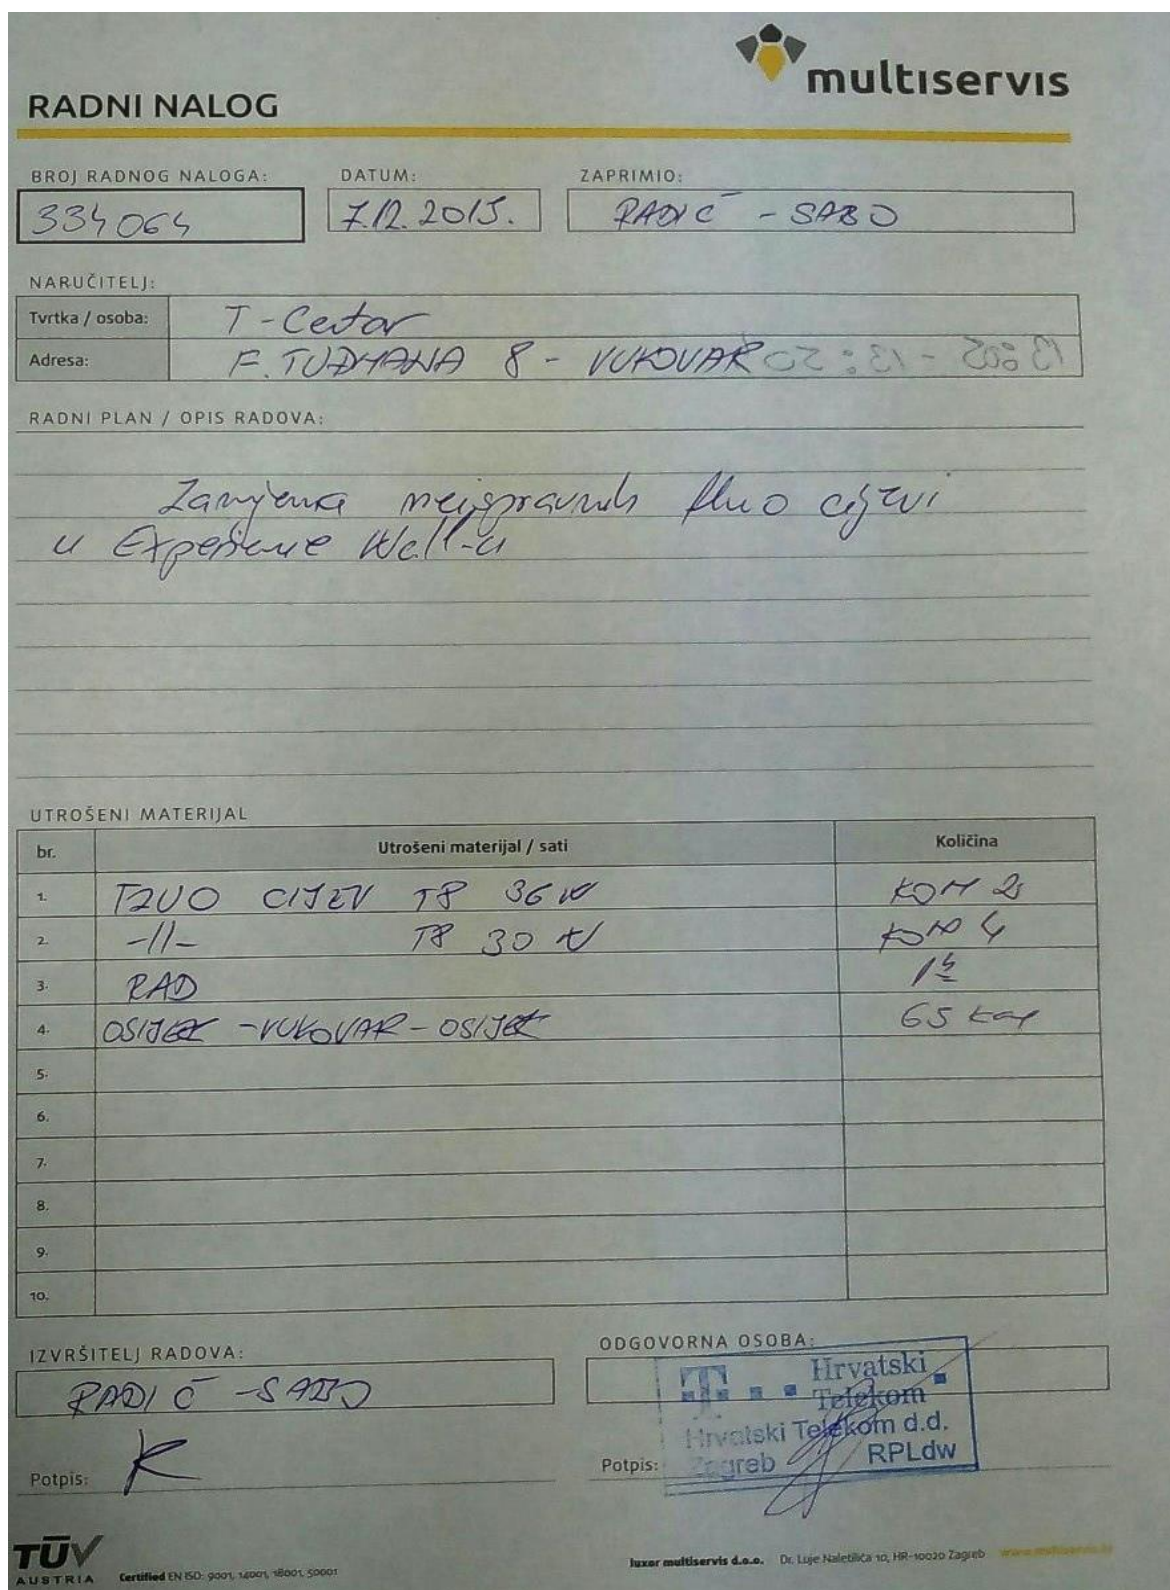 multiservis
RADNI NALOG
BROJ RADNOG NALOGA: DATUM: ZAPRIMIO:
334064 7.12.2015. RADIĆ - SABO
NARUČITELJ:
Tvrtka / osoba: T-Centar
Adresa: F. TUĐMANA 8 - VUKOVAR
RADNI PLAN / OPIS RADOVA:
Zamjena neispravnih fluo cijevi
u Experience Wall-u
UTROŠENI MATERIJAL
br. Utrošeni materijal / sati Količina
1. FLUO CIJEV T8 36W KOM
2. -11- T8 30W KOM 4
3. RAD 1h
4. OSIJEK - VUKOVAR - OSIJEK 65 km
5.
6.
7.
8.
9.
10.
IZVRŠITELJ RADOVA: ODGOVORNA OSOBA:
RADIĆ - SABO
T Hrvatski
Telekom
Hrvatski Telekom d.d.
Zagreb RPLdw
Potpis: Potpis:
TÜV
AUSTRIA Certified EN ISO: 9001, 14001, 18001, 50001
luxor multiservis d.o.o. Dr. Luje Naletilića 10, HR-10020 Zagreb